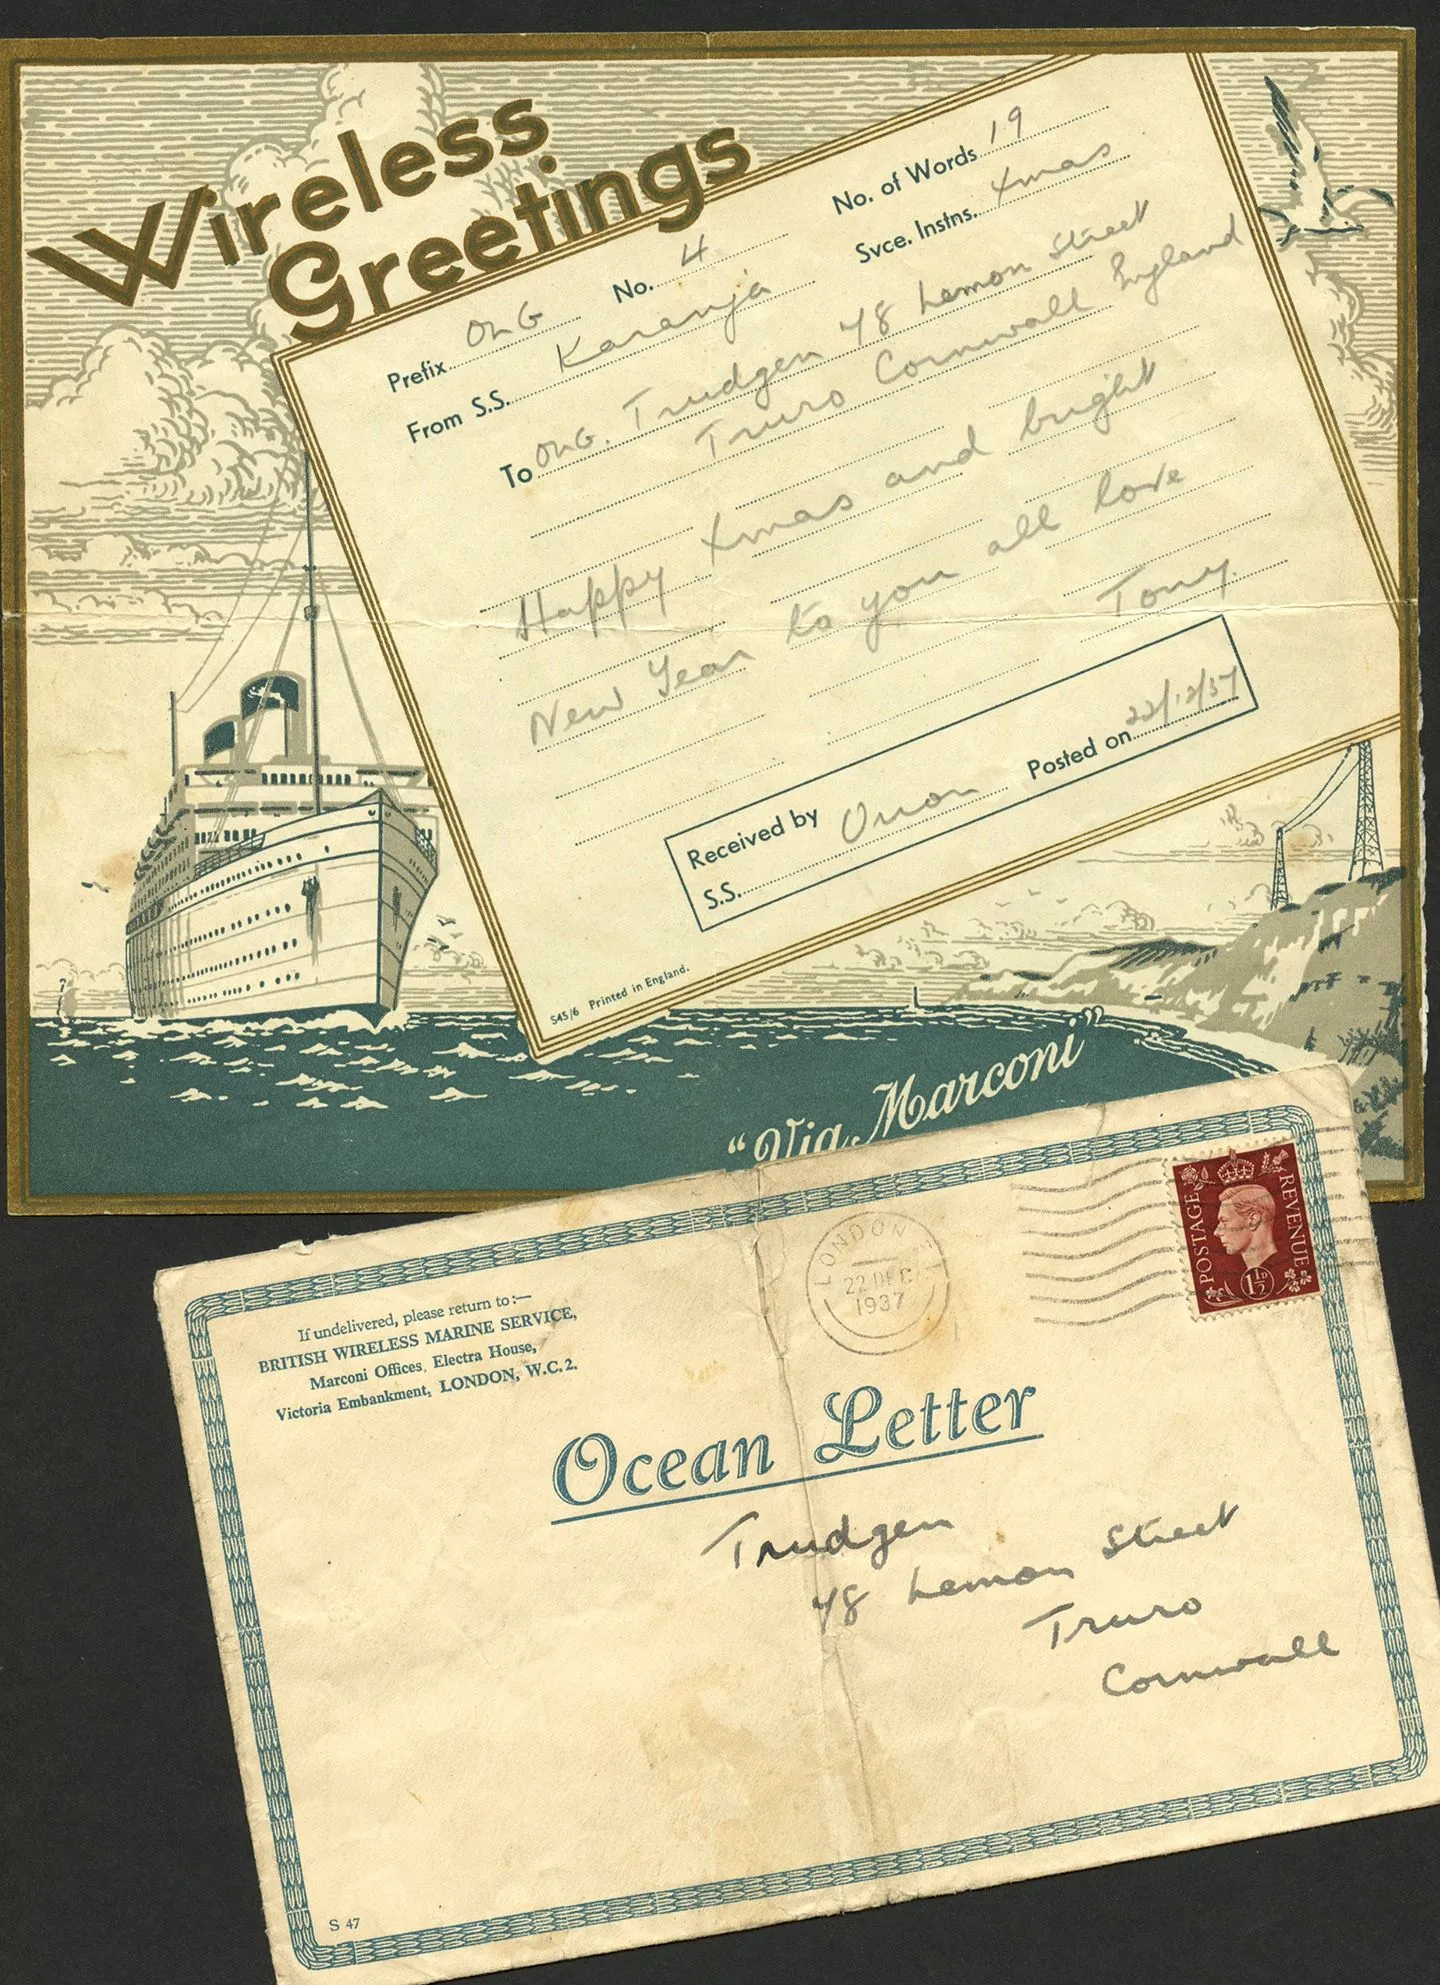 Wireless
Greetings
Prefix OLG No. 4 No. of Words 19
From S.S. Karanja Svce. Instns. Xmas
To OLG. Trudgen 48 Lemon Street
Truro Cornwall England
Happy Xmas and bright
New Year to you all love
Tony.
Received by
S.S. Orion Posted on 22/12/37
S45/6 Printed in England.
"Via Marconi"
If undelivered, please return to:—
BRITISH WIRELESS MARINE SERVICE,
Marconi Offices, Electra House,
Victoria Embankment, LONDON, W.C.2.
LONDON
22 DEC
1937
POSTAGE REVENUE
1½D
Ocean Letter
Trudgen
48 Lemon Street
Truro
Cornwall
S 47